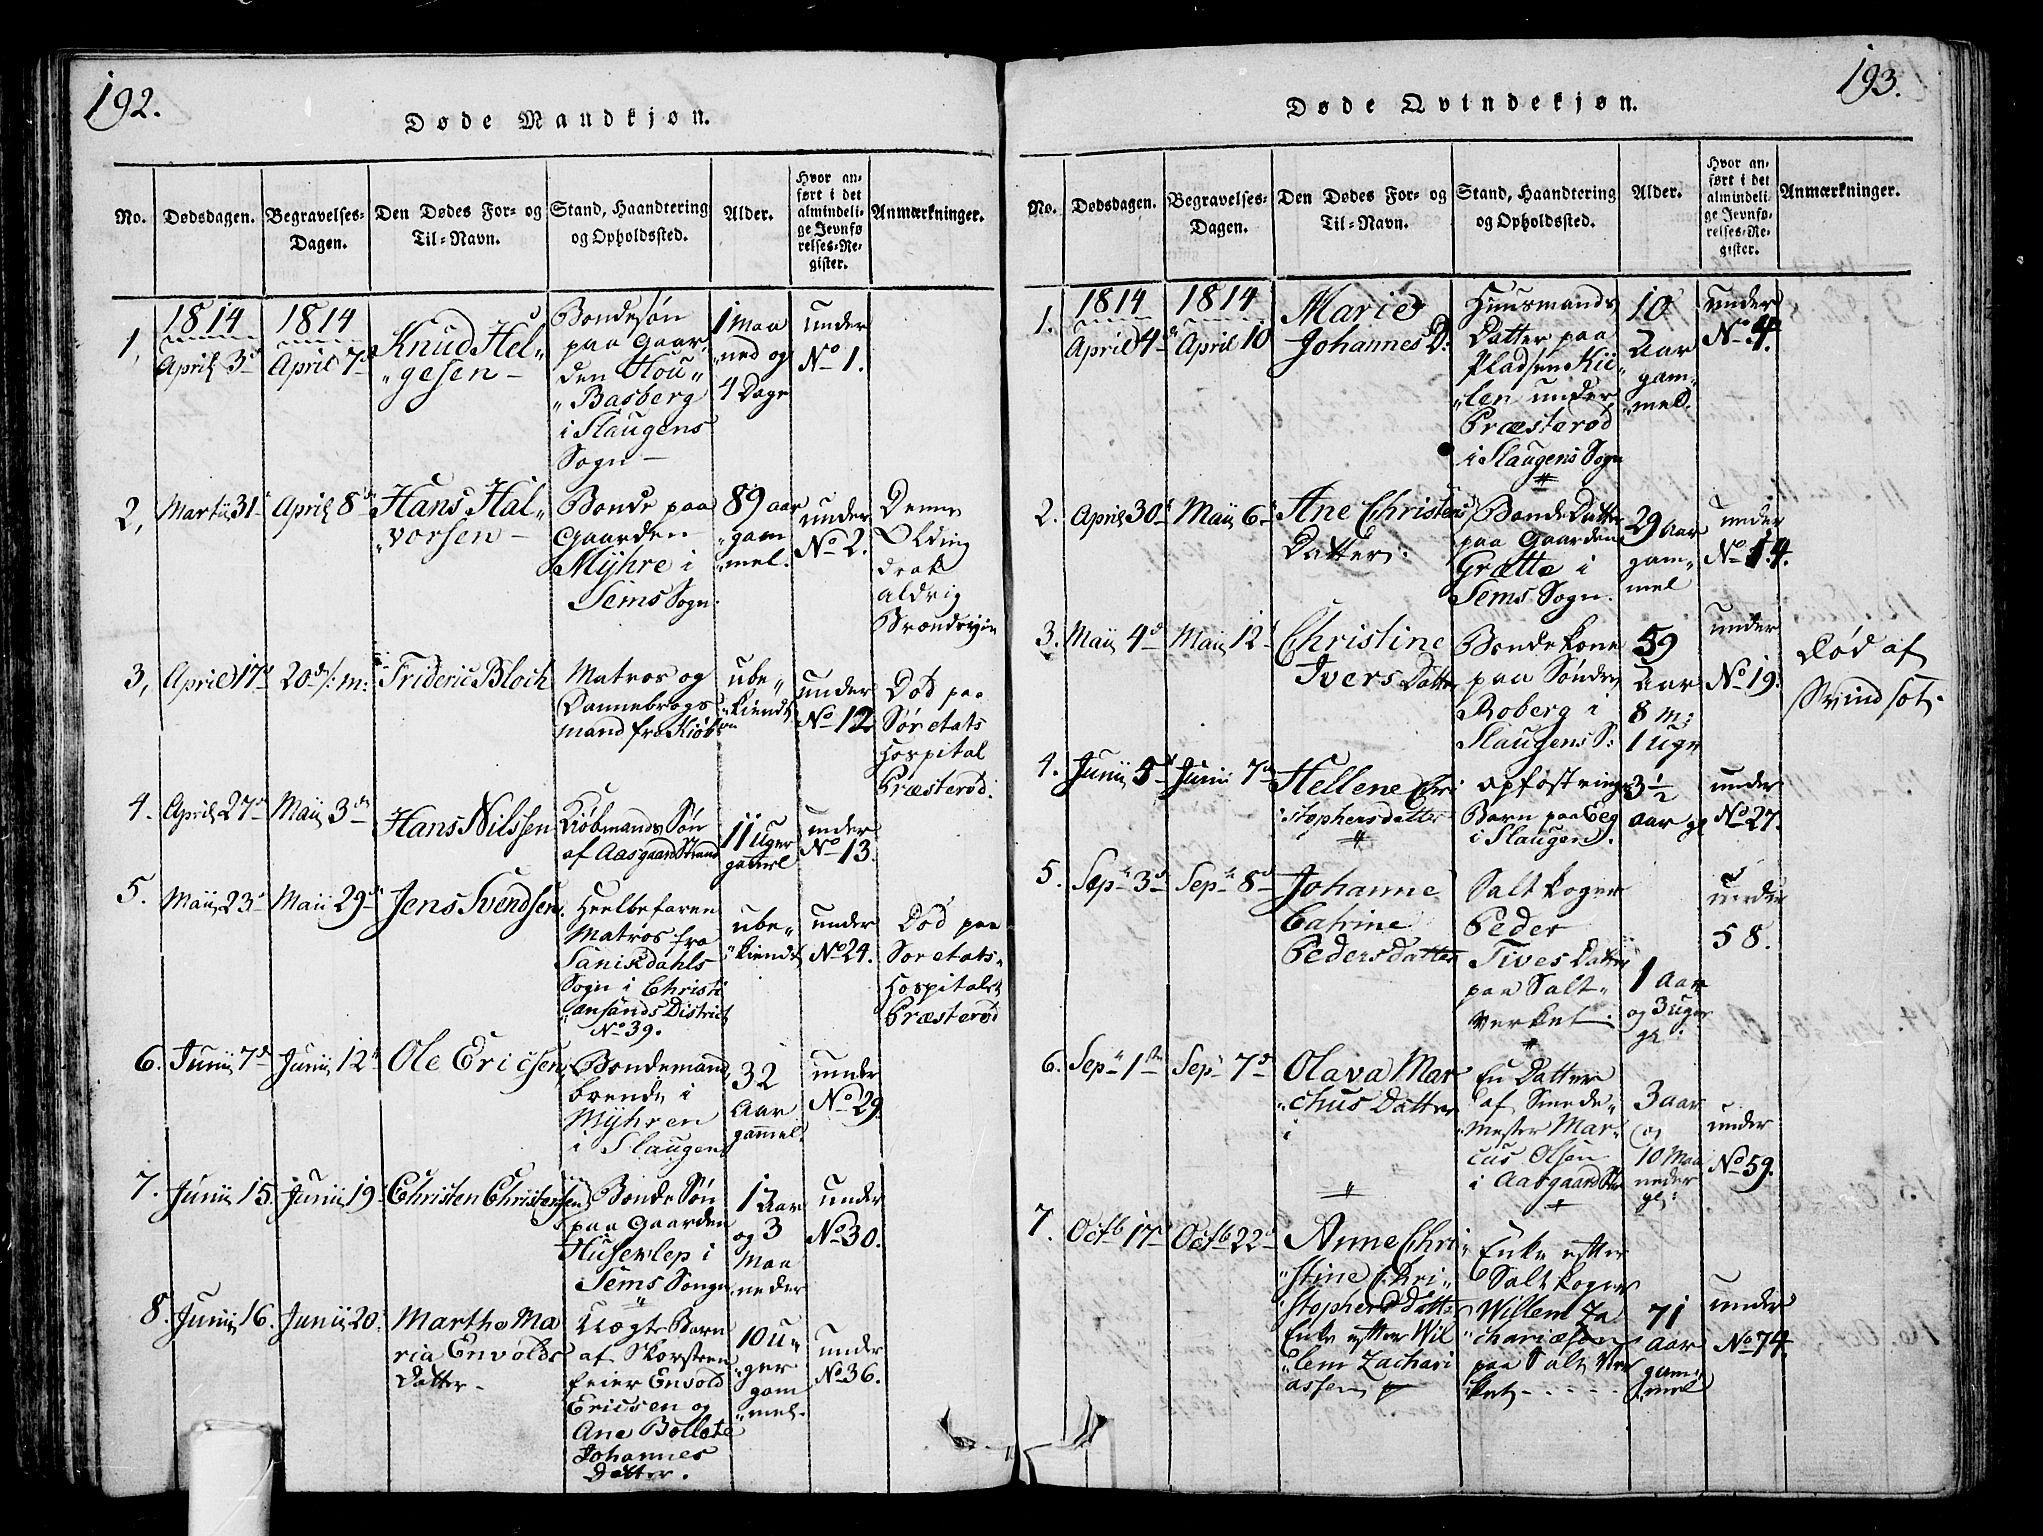 192.
Døde Mandkjøn.
No.
Dødsdagen.
Begravelses-
Dagen.
Den Dødes For- og
Til-Navn.
Stand, Haandtering
og Opholdssted.
Alder.
Hvor an-
ført i det
almindeli-
ge Jevnfø
relses-Re-
gister.
Anmærkninger.
1,
1814
April 3d
1814
April 7d
Knud Hel„
„gesen
Bondesøn
paa Gaar„
den Hou„
„Basberg
i Slaugens
Sogn
1 Maa
ned og
4 Dage
under
No 1.
2,
Martii 31
April 8de
Hans Hal„
„vorsen
Bonde paa
Gaarden
Mÿhre i
Sems Sogn.
89 aar
„gam
„mel.
under
No 2.
Denne
Olding
drak
aldrig
Brændeviin
3,
April 17d
20d/:m:
Frideric Bloch
Matros og
Dannebrogs
mand fra Kiöb
ube„
„kiendt
under
No 12
Död paa
Söe etats
Hospital
Præsteröd.
4.
April 27d
Maii 3de
Hans Nilssen
Kiöbmands Sön
af Aasgaard Strand
11 Uger
gamel
under
No 13.
5.
Maii 23d
Maii 29de
Jens Svendsen.
Heelbefaren
Matros fra
Sanikdahls
Sogn i Christi
„ansands District
No 39.
ube„
„kiendt
under
No 24.
Död paa
Söe etats„
Hospitalet
Præsteröd
6.
Junii 7d
Junii 12t
Ole Ericsen
Bondemand
boende i
Mÿhren
i Slaugen
32
Aar
gammel.
under
No 29
7.
Junii 15.
Junii 19.
Christen Christensen
Bonde Sön
paa Gaarden
Huserlep i
Sems Songn
1 Aar
og 3
Maa
neder
under
No 30.
8.
Junii 16.
Junii 20.
Martha Ma
ria Envolds
Datter
Uægte Barn
af Skorsteen
feier Envold
Ericsen og
Ane Bollete
Johannes
Datter.
10 U„
„ger
gam
„mel.
under
No 36.
193.
Døde Qvindekjøn.
No.
Dødsdagen.
Begravelses-
Dagen.
Den Dødes For- og
Til-Navn.
Stand, Haandtering
og Opholdssted.
Alder.
Hvor an-
ført i det
almindeli-
ge Jevnfø-
relses-Re-
gister.
Anmærkninger.
1.
1814
April 4de
1814
April 10
Marie
Johannes D:
Huusmands
Datter paa
Pladsen Kii„
„len under
Præsteröd
i Slaugens Sogn
10
Aar
gam„
„mel.
under
No 4.
2.
April 30d
Maii 6d
Ane Christens
Datter.
Bonde Datter
paa Gaarden
Grætte i
Sems Sogn.
29 aar
gam„
mel
under
No 14.
3.
Maii 4d
Maii 12
Christine
Ivers Datter
Bondekone
paa Söndre
Roberg i
Slaugens S:
59
Aar
8 M:
1 uge
under
No 19.
Död af
Svindsot.
4.
Junii 5d
Junii 7d
Hellene Chri
„stophersdatter
opfostrings
Barn paa Eeg
i Slaugen.
3½
aar gl
under
No 27.
5.
Sepr 3d
Sepr 8d
Johanne
Catrine
Pedersdatter
Saltkoger
Peder
Tives Datter
paa Salt„
verket.
1 aar
og 3 uger
gl:
under
58.
6.
Sepr 1ste
Sepr 7d
Olava Mar
„chus Datter
En Datter
af Smede„
„mester Mar„
cus Olsen
i Aasgaard Str
3 aar
og
10 Maa
neder
gl:
under
No 59.
7.
Octb 17d
Octb 22d
Anne Chri„
„stine Chri„
„stophers Datter
Enke efter Wil
„lem Zachari
assen
Enke efter
Saltkoger
Willem Za
„chariæsen
paa Salt Ver
„ket
71
aar
gam„
„mel
under
No 74.